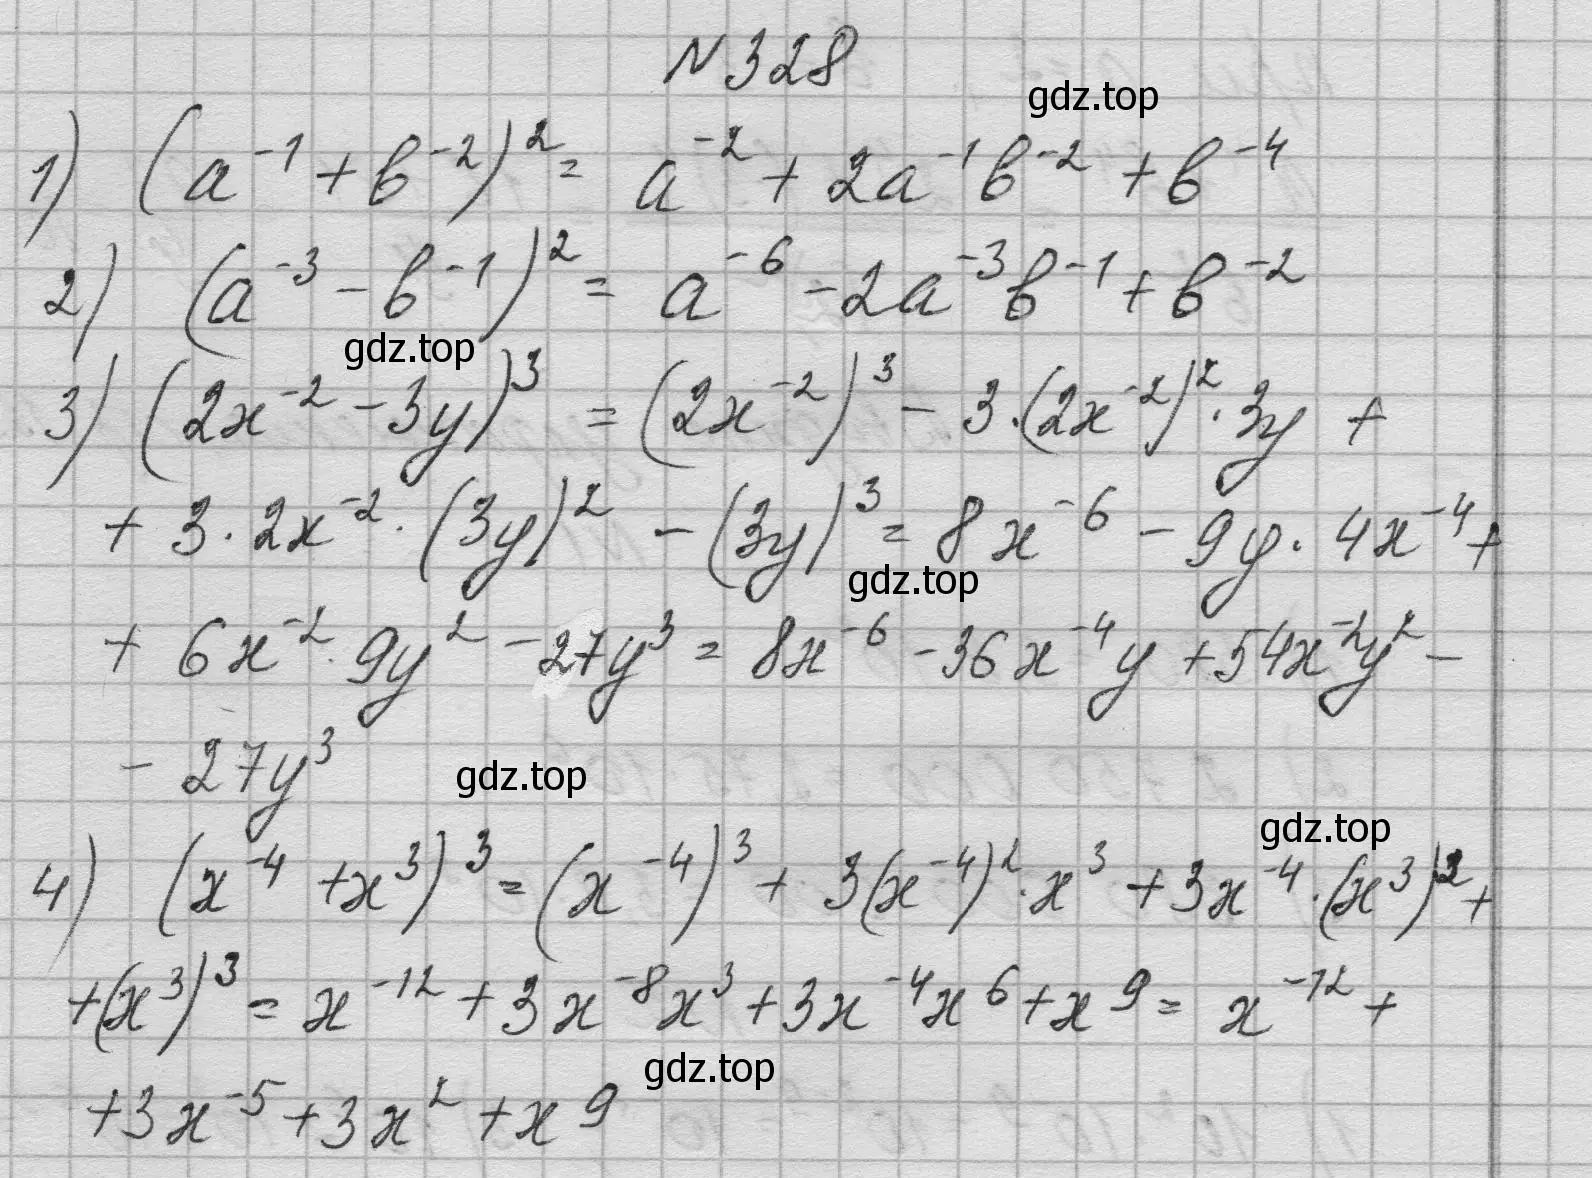 N 328
gdz.top
1) (a⁻¹ + b⁻²)² = a⁻² + 2a⁻¹b⁻² + b⁻⁴
2) (a⁻³ - b⁻¹)² = a⁻⁶ - 2a⁻³b⁻¹ + b⁻²
gdz.top
3) (2x⁻² - 3y)³ = (2x⁻²)³ - 3·(2x⁻²)²·3y +
+ 3·2x⁻²·(3y)² - (3y)³ = 8x⁻⁶ - 9y·4x⁻⁴ +
gdz.top
+ 6x⁻²·9y² - 27y³ = 8x⁻⁶ - 36x⁻⁴y + 54x⁻²y² -
- 27y³
gdz.top
gdz.top
4) (x⁻⁴ + x³)³ = (x⁻⁴)³ + 3(x⁻⁴)²·x³ + 3x⁻⁴·(x³)² +
+ (x³)³ = x⁻¹² + 3x⁻⁸x³ + 3x⁻⁴x⁶ + x⁹ = x⁻¹² +
gdz.top
+ 3x⁻⁵ + 3x² + x⁹